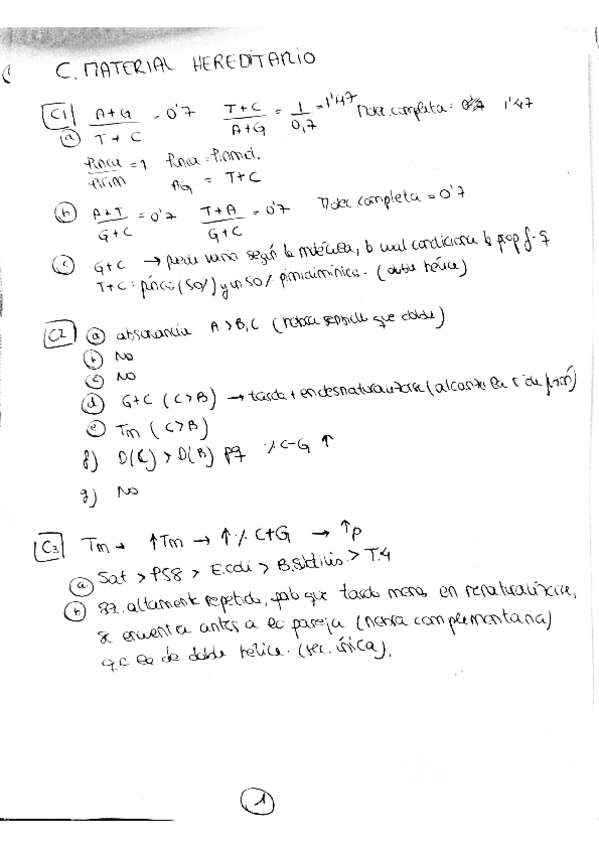 C. MATERIAL HEREDITARIO
C1 a) A+G / T+C = 0'7 T+C / A+G = 1 / 0,7 = 1'47 Molec. completa: 1'47
= 1
AG = T+C
b) A+T / G+C = 0'7 T+A / G+C = 0'7 Molec completa = 0'7
c) G+C → puede variar según la molécula, lo cual condiciona la prop f-q
T+C: púricas (50%) y un 50% pirimidínicas. (doble hélice)
C2 a) absorbancia A > B, C (hebra sencilla que doble)
b) NO
c) NO
d) G+C (C>B) → tarda + en desnaturalizarse (alcanzar la Tº de fusión)
e) Tm (C>B)
f) D(C) > D(B) pq %C-G ↑
g) NO
C3 Tm → ↑Tm → ↑% C+G → ↑ρ
a) Sat > PS8 > E.coli > B.Subtilis > T4
b) altamente repetido, pab que tarda menos en renaturalizarse,
se encuentra antes a la pareja (hebra complementaria)
q.c la de doble hélice. (sec. única).
1